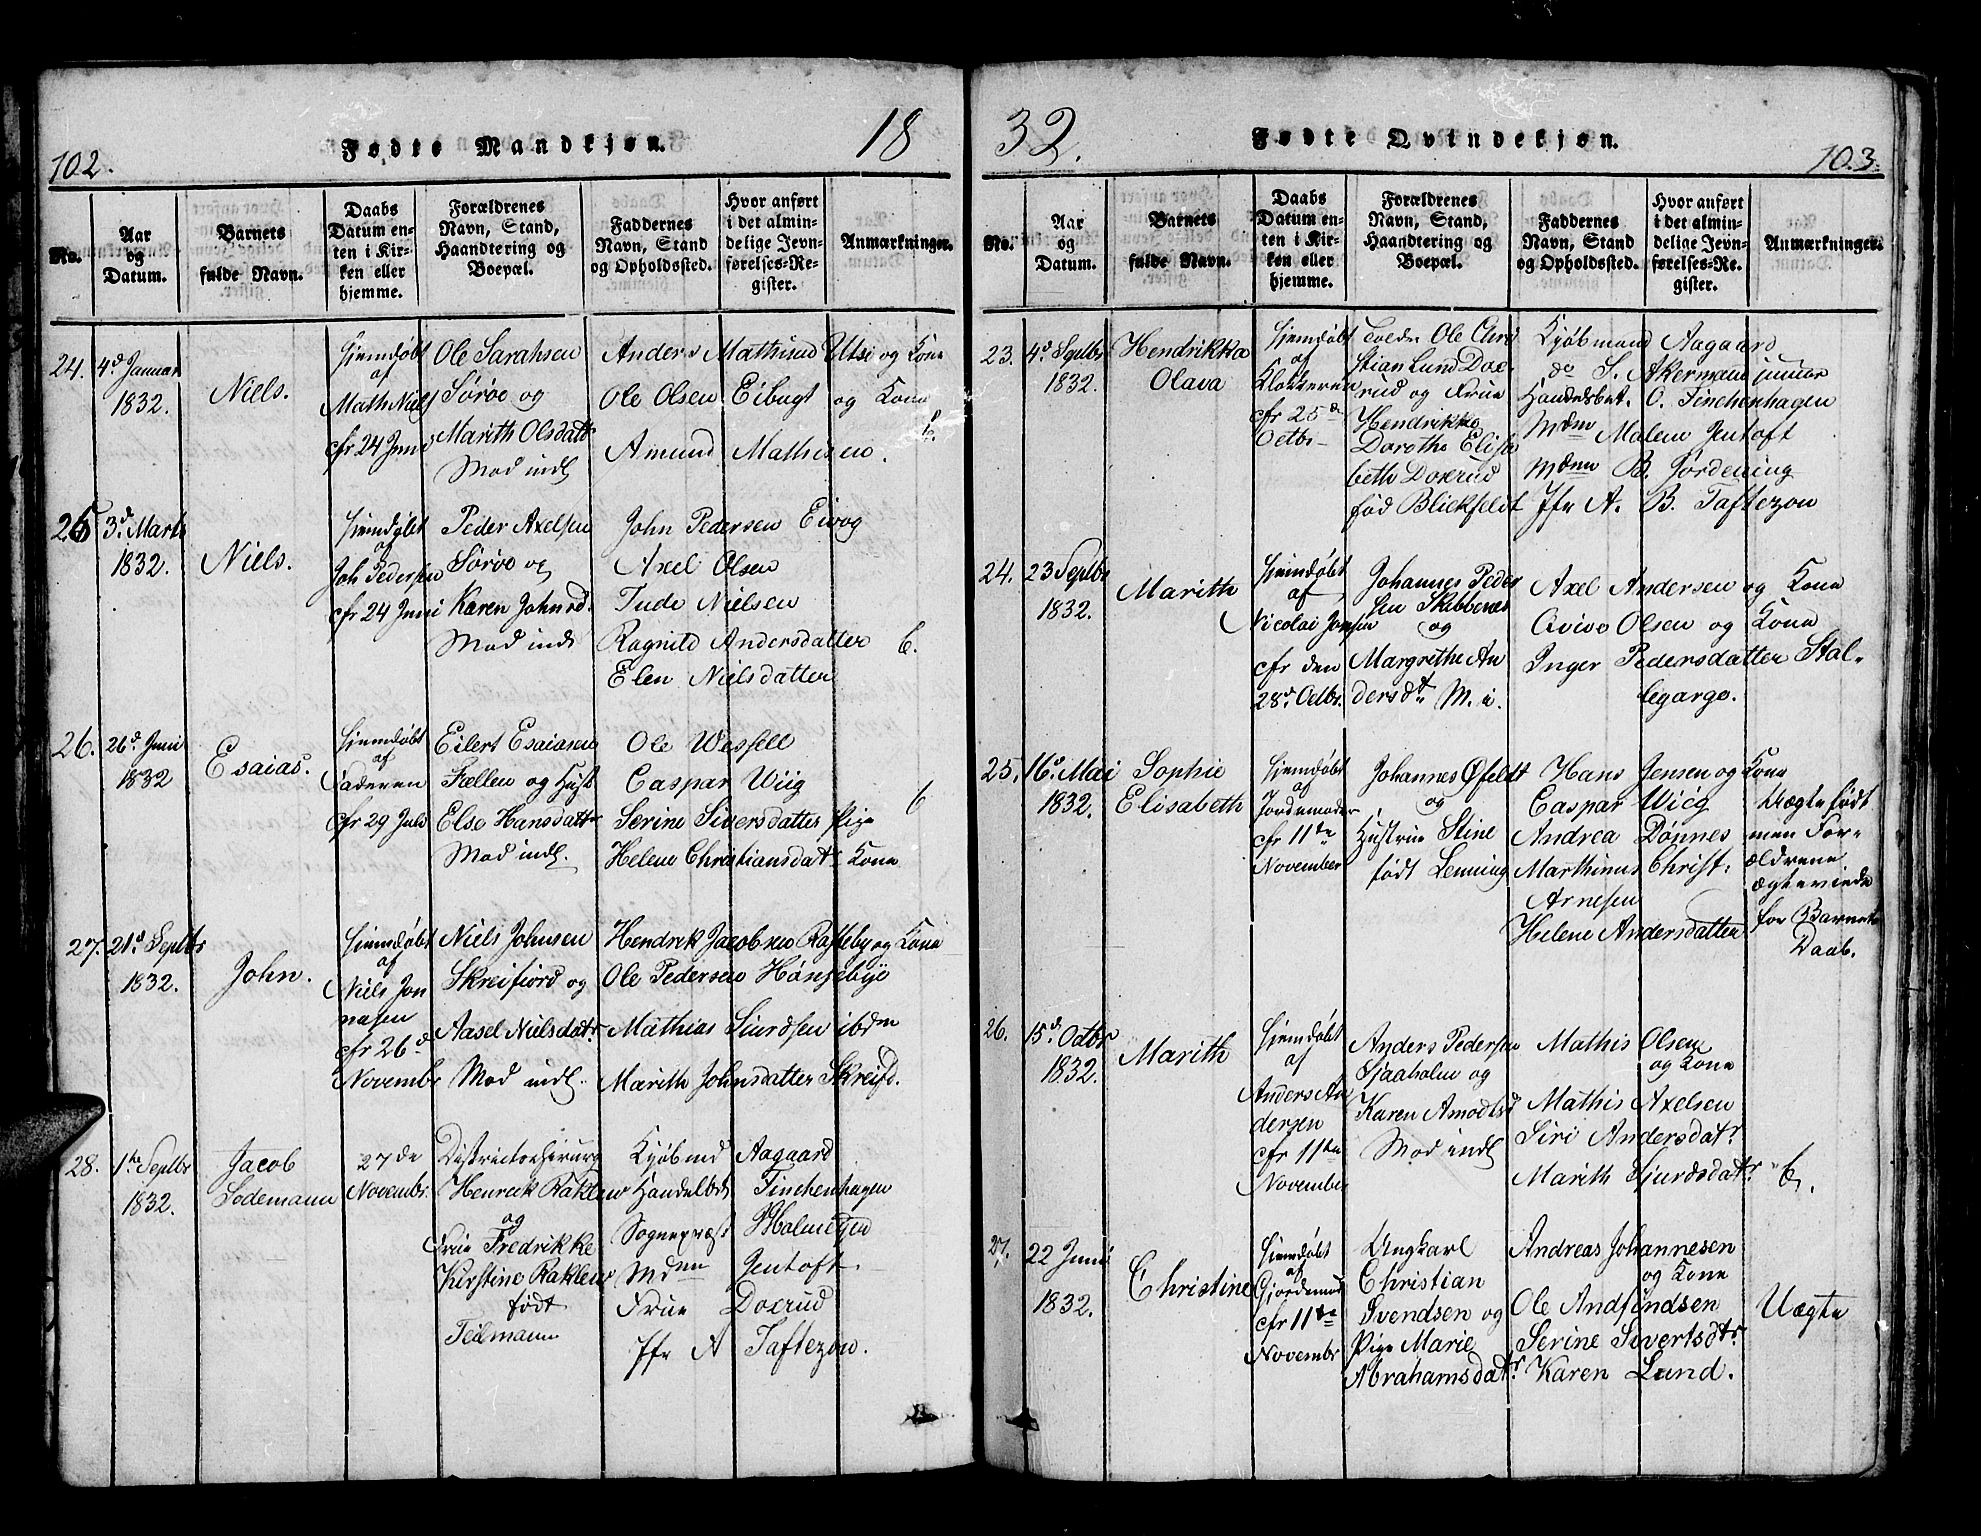 102.
Fødte Mandkjøn.
18
No.
Aar og Datum.
Barnets fulde Navn.
Daabs Datum enten i Kirken eller hjemme.
Forældrenes Navn, Stand, Haandtering og Boepæl.
Faddernes Navn, Stand og Opholdssted.
Hvor anført i det almindelige Jevnførelses-Register.
Anmærkninger.
24.
4d Januar
1832.
Niels.
Hjemdøbt
af
Math Niels
cfr 24 Juni
Ole Sarahsen
Sørøe og
Marith Olsdattr
Mod indl
Anders Mathisud Utsi og Kone
Ole Olsen Eibugt og Kone
Amund Mathisen.
6.
25
3d Marts
1832.
Niels.
Hjemdøbt
af
Joh Pedersen
cfr 24 Juni
Peder Axelsen
Sørøe og
Karen Johnsd.
Mod indl
John Pedersen Eivog
Axel Olsen
Tude Nielsen
Ragnild Andersdatter
Elen Nielsdatter
6.
26.
26d Juni
1832
Esaias.
Hjemdøbt
af
Faderen
cfr 29 Juli
Eilert Esaiasen
Fællen og Hust
Else Hansdattr
Mod indl.
Ole Wessell
Caspar Wiig
Serine Siversdatter Pige
Helene Christiansdatr Kone
6
27.
21d Septbr
1832.
John.
Hjemdøbt
af
Niels Jon
nasen
cfr 26d
Novembr
Niels Johnsen
Skreifiord og
Aasel Nielsdatr
Mod indl.
Hendrik Jacobsen Rafseby og Kone
Ole Pedersen Hønsebye
Mathias Siurdsen ibdm
Marith Johnsdatter Skreifd.
28.
1te Septbr
1832.
Jacob
Sodemann
27de
Novembr.
Districtschirurg
Henrik Raklew
og
Frue Fredrikke
Kirstine Raklew
født
Teilmann
Kjøbmd Aagaard
Handelbet Finchenhagen
Sogneprest Holmesen
Mdnn Gentoft.
Frue Doxrud
Jfr A Taftezon.
32.
Fødte Qvindekjøn.
103.
No.
Aar og Datum.
Barnets fulde Navn.
Daabs Datum enten i Kirken eller hjemme.
Forældrenes Navn, Stand, Haandtering og Boepæl.
Faddernes Navn, Stand og Opholdssted.
Hvor anført i det almindelige Jevnførelses-Register.
Anmærkninger.
23.
4d Septbr
1832.
Hendrikka
Olava
Hjemdøbt
af
Klokkeren
cfr 25de
Octbr
Ole Chri
stian Lund Dox
rud og Frue
Hendrikke
Dorothe Elisa
beth Doxrud
fød Blickfeldt
Kjøbmand Aagaard
do S. Akermann junior
Handelsbet. O. Finchenhagen
Mdnn Malene Gentoft
Mdnn B. Jørdening
Jfr A. B. Taftezon
24.
23 Septbr
1832.
Marith
Hjemdøbt
af
Nicolai Jonsen
cfr den
28d Octbr.
Johannes Peder
sen Skibbenes
og
Margrethe An
dersdt M. i.
Axel Andersen og Kone
Avivo Olsen og Kone
Inger Pedersdatter Stal-
legarge.
25.
16d Mai
1832.
Sophie
Elisabeth
Hjemdøbt
af
Jordemoder
cfr 11te
November
Johannes Øfeldt
og
Hustrue Stine
født Lenning
Hans Jensen og Kone
Caspar Wiig
Andrea Dønnes
Marthinus Christ:
Arnesen
Helene Andersdatter
Uægte født
men For-
ældrene
ægteviede
for Barnets
Daab.
26.
15d Octbr
1832.
Marith
Hjemdøbt
af
Anders An
dersen
cfr 11te
November
Anders Pedersen
Sjaaholm og
Karen Amodtsd
Mod indl
Mathis Olsen
og Kone
Mathis Axelsen
Siri Andersdatr
Marith Sjurdsdatr
6.
27.
22 Juni
1832.
Christine
Hjemdøbt
af
Gjordemod
cfr 11te
Novembr
Ungkarl
Christian
Svendsen og
Pige Marie
Abrahamsdatr
Andreas Johannesen
og Kone
Ole Andfindsen
Serine Sivertsdtr
Karen Lund.
Uægte